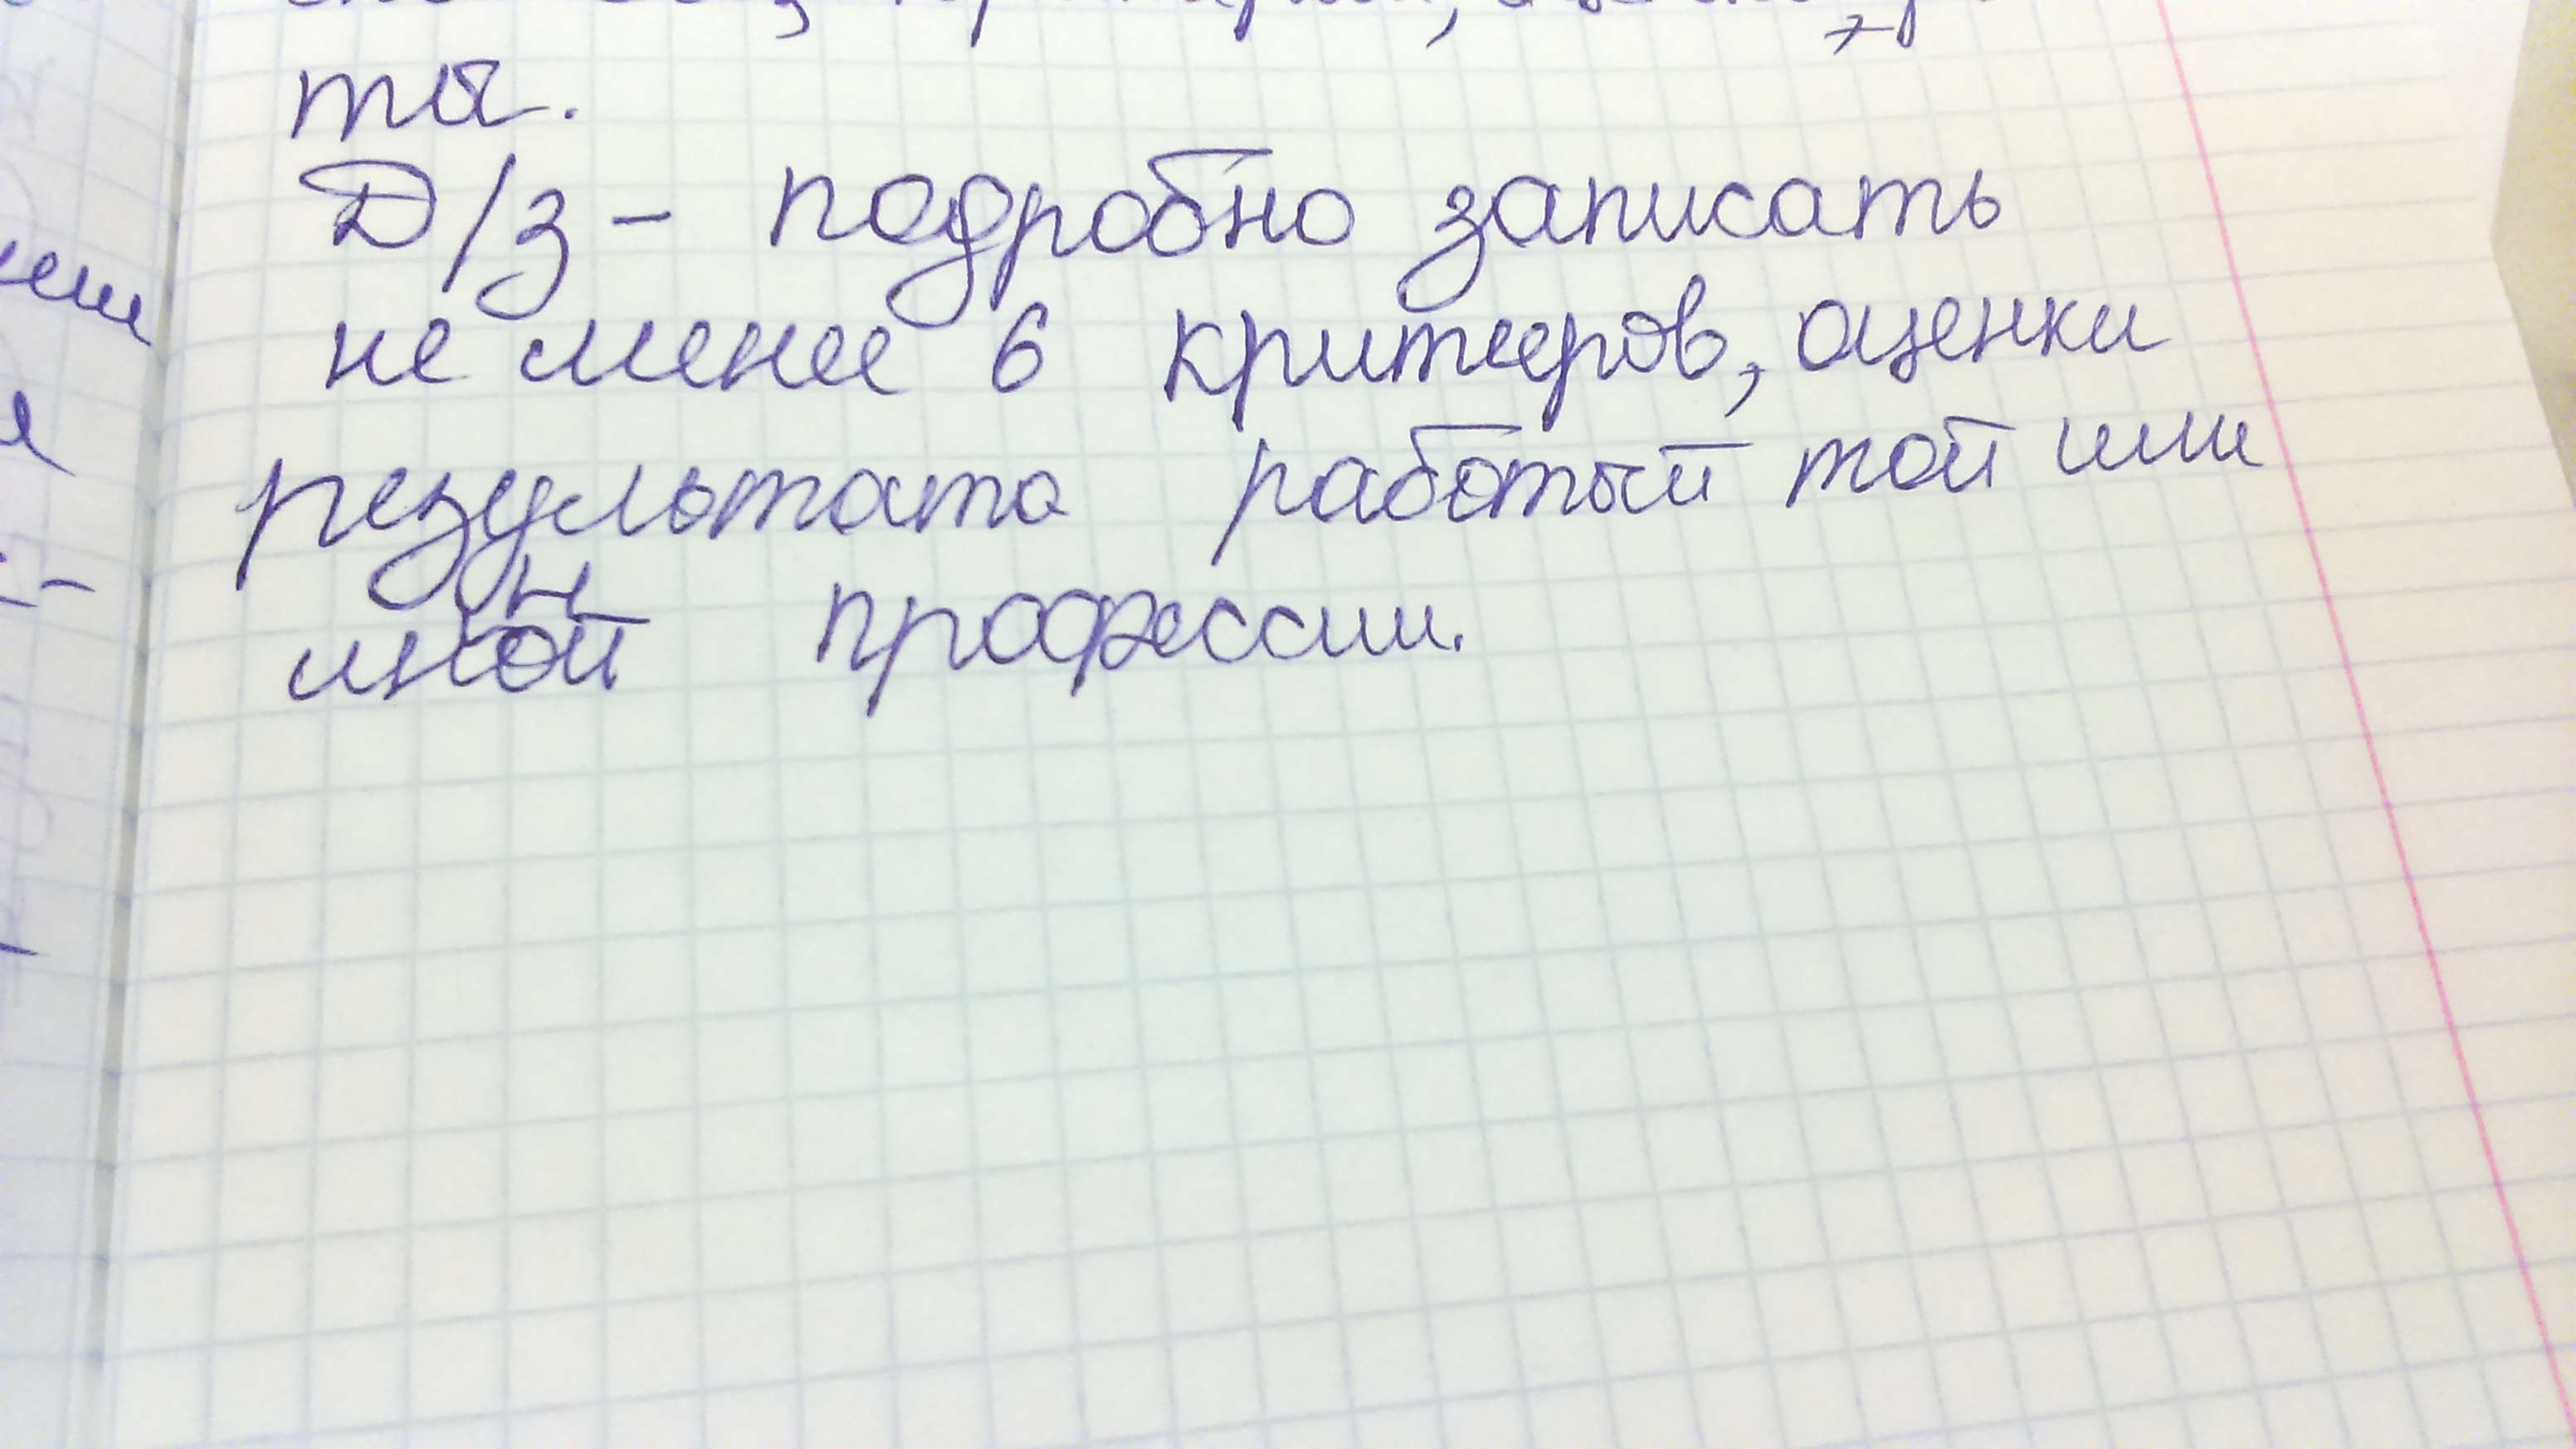 та.
Д/з - подробно записать
не менее 6 критеров, оценки
результата работый той или
иной профессии.